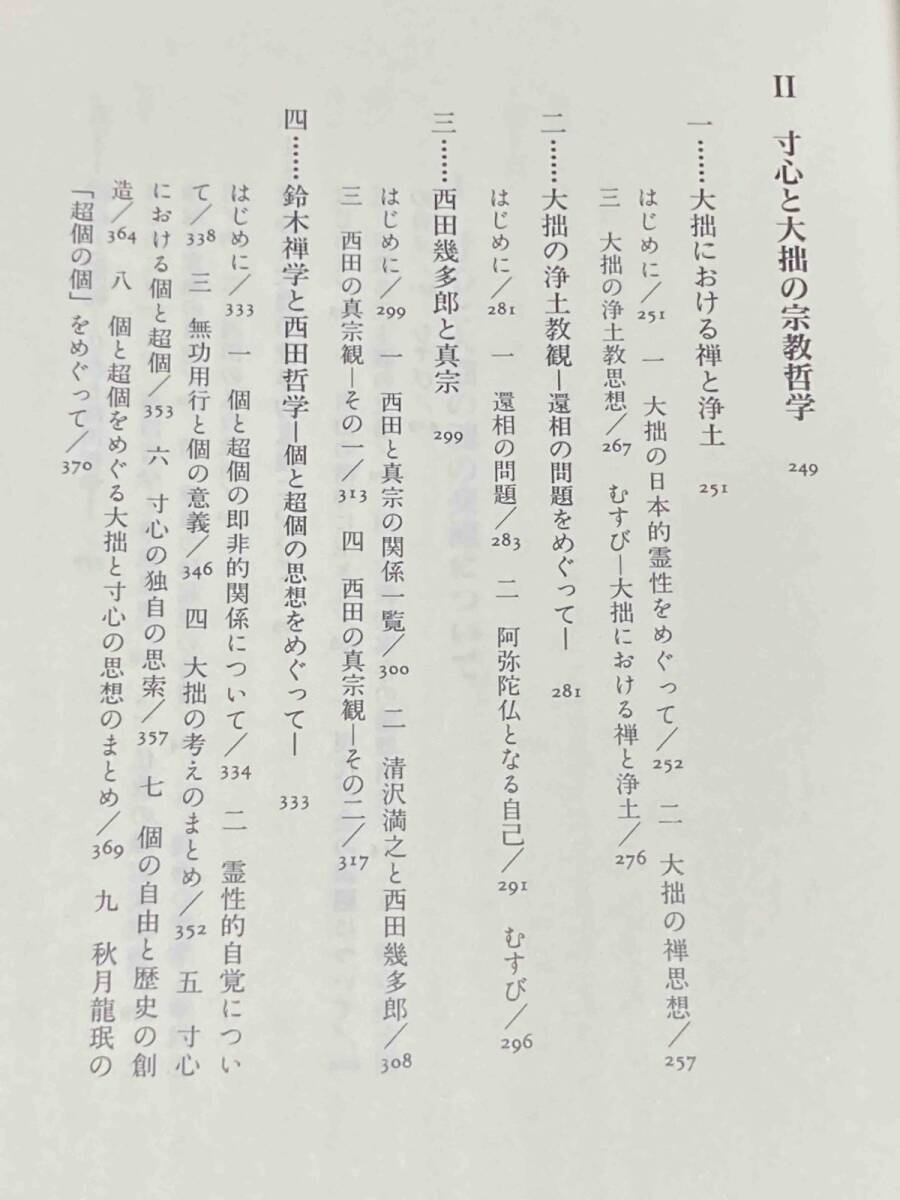 II　寸心と大拙の宗教哲学　249
一……大拙における禅と浄土　251
はじめに／251　一　大拙の日本的霊性をめぐって／252　二　大拙の禅思想／257
三　大拙の浄土教思想／267　むすび―大拙における禅と浄土／276
二……大拙の浄土教観―還相の問題をめぐって―　281
はじめに／281　一　還相の問題／283　二　阿弥陀仏となる自己／291　むすび／296
三……西田幾多郎と真宗　299
はじめに／299　一　西田と真宗の関係一覧／300　二　清沢満之と西田幾多郎／308
三　西田の真宗観―その一／313　四　西田の真宗観―その二／317
四……鈴木禅学と西田哲学―個と超個の思想をめぐって―　333
はじめに／333　一　個と超個の即非的関係について／334　二　霊性的自覚につい
て／338　三　無功用行と個の意義／346　四　大拙の考えのまとめ／352　五　寸心
における個と超個／353　六　寸心の独自の思索／357　七　個の自由と歴史の創
造／364　八　個と超個をめぐる大拙と寸心の思想のまとめ／369　九　秋月龍珉の
「超個の個」をめぐって／370